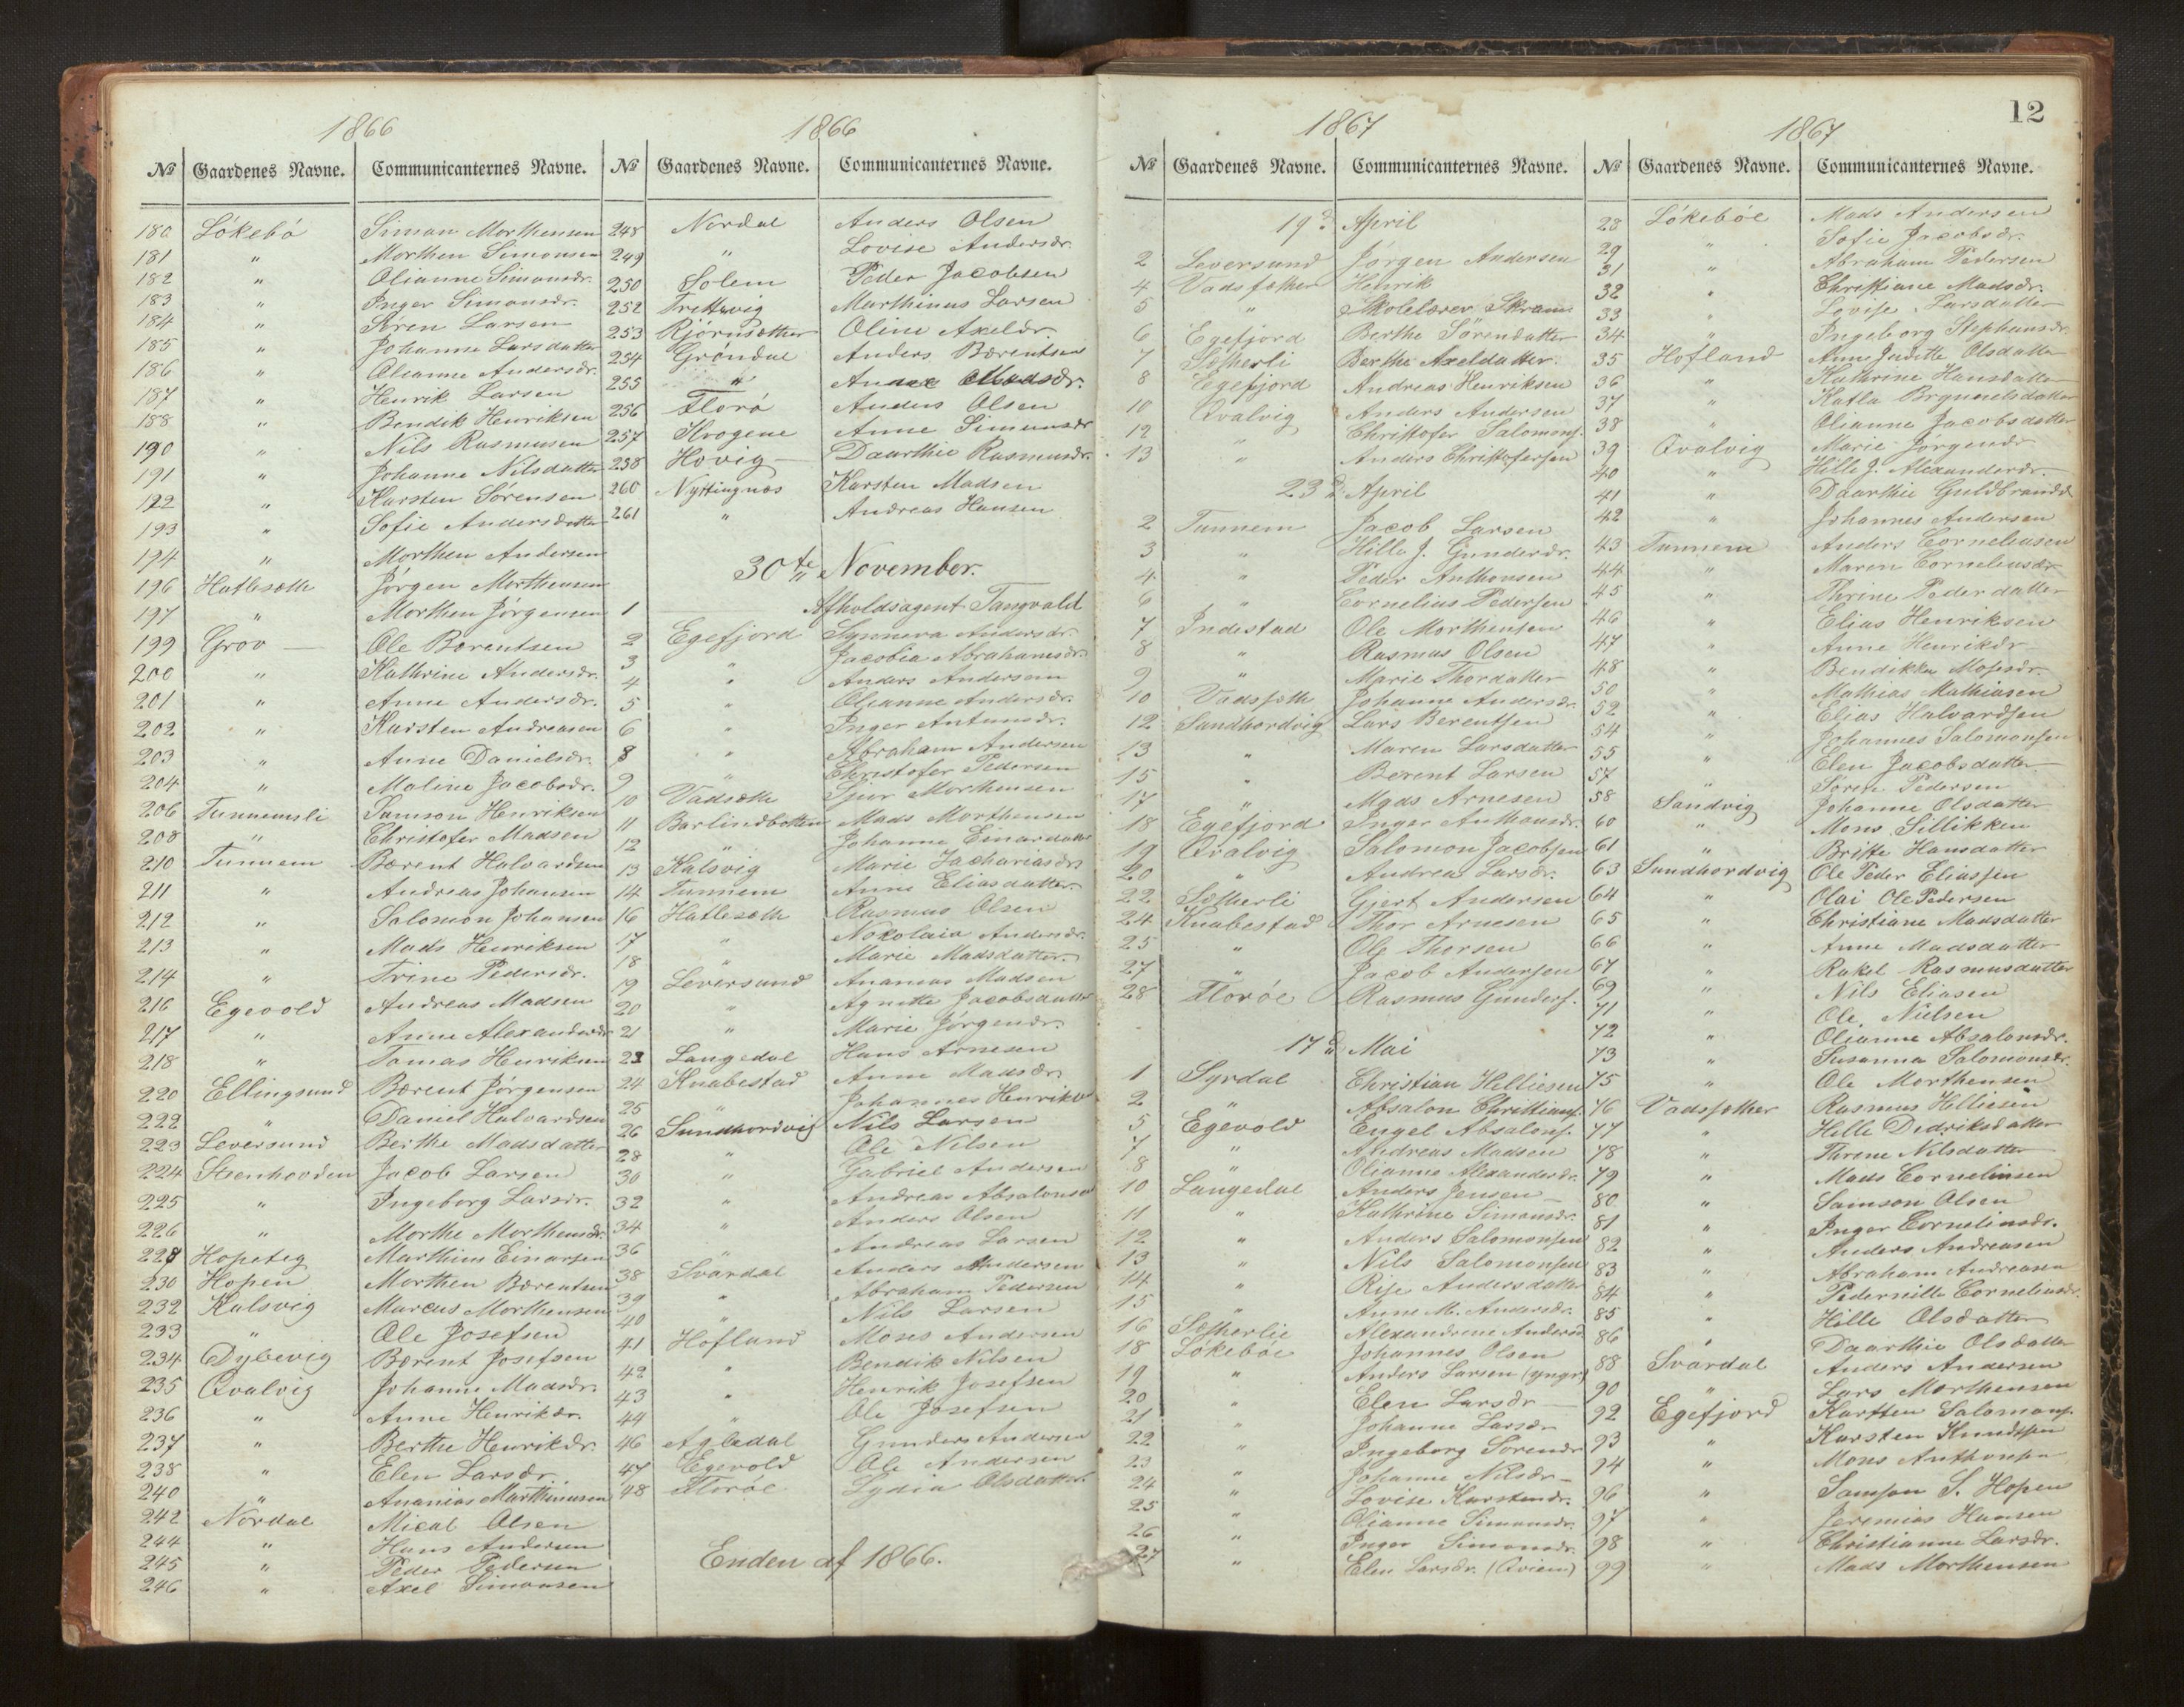 1866
1866
№ Gaardenes Navne. Communicanternes Navne. № Gaardenes Navne. Communicanternes Navne.
180 Lökebö Simon Morthensen
181 " Morthen Simonsen
182 " Olianne Simonsdr.
183 " Inger Simonsdr.
184 " Sören Larsen
185 " Johanne Larsdatter
186 " Olianne Andersdr.
187 " Henrik Larsen
188 " Bendik Henriksen
190 " Nils Rasmusen
191 " Johanne Nilsdatter
192 " Karsten Sörensen
193 " Sofie Andersdatter
194 " Morthen Andersen
196 Hatlesæth Jörgen Morthensen
197 " Morthen Jörgensen
199 Grov — Ole Bærentsen
200 " Kathrine Andersdr.
201 " Anne Andersdr.
202 " Karsten Andreasen
203 " Anne Danielsdr.
204 " Maline Jacobsdr.
206 Tunnemsli Samson Henriksen
208 " Christofer Madsen
210 Tunnem Bærent Halvardsen
211 " Andreas Johansen
212 " Salomon Johansen
213 " Mads Henriksen
214 " Trine Pedersdr.
216 Egevold Andreas Madsen
217 " Anne Alexandersdr
218 " Tomas Henriksen
220 Ellingsund Bærent Jörgensen
222 " Daniel Halvardsen
223 Leversund Berthe Madsdatter
224 Steenhovden Jacob Larsen
225 " Ingeborg Larsdr.
226 " Morthe Morthensdr
228 Hopeteg Marthin Einarsen
230 Hopen Morthen Bærentsen
232 Kalsvig Marcus Morthensen
233 " Ole Josefsen
234 Dybevig Bærent Josefsen
235 Qvalvig Johanne Madsdr.
236 " Anne Henriksdr.
237 " Berthe Henriksdr.
238 " Elen Larsdr.
240 " Ananias Marthinusen
242 Nordal Mical Olsen
244 " Hans Andersen
245 " Peder Pedersen
246 " Axel Simonsen
248 Nordal Anders Olsen
249 " Lovise Andersdr.
250 Solem Peder Jacobsen
252 Trettevig Marthinus Larsen
253 Björnsæther Oline Axeldr.
254 Gröndal Anders Bærentsen
255 " Madsdr.
256 Florö Anders Olsen
257 Krogene Anne Simonsdr
258 Hovig — Daarthie Rasmusdr.
260 Nyttingnæs Karsten Madsen
261 " Andreas Hansen
30te November.
1 Afholdsagent Tangvald
2 Egefjord Synneva Andersdr.
3 " Jacobia Abrahamsdr.
4 " Anders Andersen
5 " Olianne Andersdr.
6 " Inger Antonsdr.
8 " Abraham Andersen
9 " Christofer Pedersen
10 Vadsæth Sjur Morthensen
11 Barlindbotten Mads Morthensen
12 " Johanne Einarsdatter
13 Kalsvig Marie Zachariasdr
14 Tunnem Anne Eliasdatter
16 Hatlesæth Rasmus Olsen
17 " Nokolaia Andersdr.
18 " Marie Madsdatter
19 Leversund Ananias Madsen
20 " Agnette Jacobsdatter
21 " Marie Jörgensdr.
22 Langedal Hans Arnesen
24 Knabestad Anne Madsdr.
25 " Johannes Henriksen
26 Sundhordvig Nils Larsen
28 " Ole Nilsen
30 " Gabriel Andersen
32 " Andreas Absalonsen
34 " Anders Olsen
36 " Andreas Larsen
38 Svardal Anders Andersen
39 " Abraham Pedersen
40 " Nils Larsen
41 Hofland Moses Andersen
42 " Bendik Nilsen
43 " Henrik Josefsen
44 " Ole Josefsen
46 Agledal Gunders Andersen
47 Egevold Ole Andersen
48 Floröe Lydia Olsdatter
Enden af 1866.
12
1867
1867
№ Gaardenes Navne. Communicanternes Navne. № Gaardenes Navne. Communicanternes Navne.
19d April
2 Leversund Jörgen Andersen
4 Vadsæther Henrik
5 " Skolelærer Skram
6 Egefjord Berthe Sörensdatter
7 Sætherli Berthe Axeldatter.
8 Egefjord Andreas Henriksen
10 Qvalvig Anders Andersen
12 " Christofer Salomons.
13 " Anders Christofersen
23d April
2 Tunnem Jacob Larsen
3 " Hille J. Gundersdr.
4 " Peder Anthonsen
6 " Cornelius Pedersen
7 Indestad Ole Morthensen
8 " Rasmus Olsen
9 " Marie Thordatter
10 Vadsæth Johanne Andersdr.
12 Sundhordvig Lars Berentsen
13 " Maren Larsdatter
15 " Berent Larsen
17 " Mads Arnesen
18 Egefjord Inger Anthonsdr.
19 Qvalvig Salomon Jacobsen
20 " Andrea Larsdr.
22 Sætherli Gjert Andersen
24 Knabestad Thor Arnesen
25 " Ole Thorsen
27 " Jacob Andersen
28 Floröe Rasmus Gunders.
17d Mai
1 Syrdal Christian Helliesen
2 " Absalon Christians.
5 Egevold Engel Absalons.
7 " Andreas Madsen
8 " Olianne Alexandersdr.
10 Langedal Anders Jensen —
11 " Kathrine Simonsdr.
12 " Anders Salomonsen
13 " Nils Salomonsen
14 " Rise Andersdatter
15 " Anne M. Andersdr.
16 Sætherlie Alexandrine Andersd.
18 Lökeböe Johannes Olsen
19 " Anders Larsen (yngr)
20 " Elen Larsdr —
21 " Johanne Larsdr
22 " Ingeborg Sörensdr
23 " Johanne Nilsdr —
24 " Lovise Karstensdr.
25 " Olianne Simonsdr.
26 " Inger Simonsdr.
27 " Elen Larsdr.
28 Lökeböe Mads Andersen
29 " Sofie Jacobsdr.
31 " Abraham Pedersen
32 " Christiane Madsdr.
33 " Lovise Larsdatter
34 " Ingeborg Stephansdr.
35 Hofland Anne Juditte Olsdatter
36 " Kathrine Hansdatter
37 " Katla Brynnelsdatter
38 " Olianne Jacobsdatter
39 Qvalvig Marie Jörgensdr
40 " Hille J. Alexandersdr.
41 " Daarthie Guldbrandsd
42 " Johannes Andersen
43 Tunnem Anders Corneliusen
44 " Maren Corneliusdr
45 " Thrine Pedersdatter
46 " Elias Henriksen
47 " Anne Henriksdr
48 " Bendikka Mosesdr.
50 " Mathias Mathiasen
52 " Elias Halvardsen
54 " Johannes Salomonsen
55 " Elen Jacobsdatter
57 " Sören Pedersen
58 Sandvig Johanne Olsdatter
60 " Mons Sillikken
61 " Britte Hansdatter
63 Sundhordvig Ole Peder Eliassen
64 " Olai Ole Pedersen
65 " Christiane Madsdatter
66 " Anne Madsdatter
67 " Rakel Rasmusdatter
69 " Nils Eliasen
71 " Ole Nielsen
72 " Olianne Absalonsdr.
73 " Susanna Salomonsdr.
75 " Ole Morthensen
76 Vadsæther Rasmus Helliesen
77 " Hille Didriksdatter
78 " Thrine Nilsdatter
79 " Mads Corneliusen
80 " Samson Olsen
81 " Inger Corneliusdr.
82 " Anders Andreasen
83 " Abraham Andreasen
84 " Pedernille Corneliusdr.
85 " Hille Olsdatter
86 " Daarthie Olsdatter
88 Svardal Anders Andersen
90 " Lars Morthensen
92 Egefjord Karsten Salomons.
93 " Karsten Knudtsen
94 " Moses Anthonsen
96 " Samson S. Hopen
97 " Jeremias Hansen
98 " Christianne Larsdr.
99 " Mads Morthensen